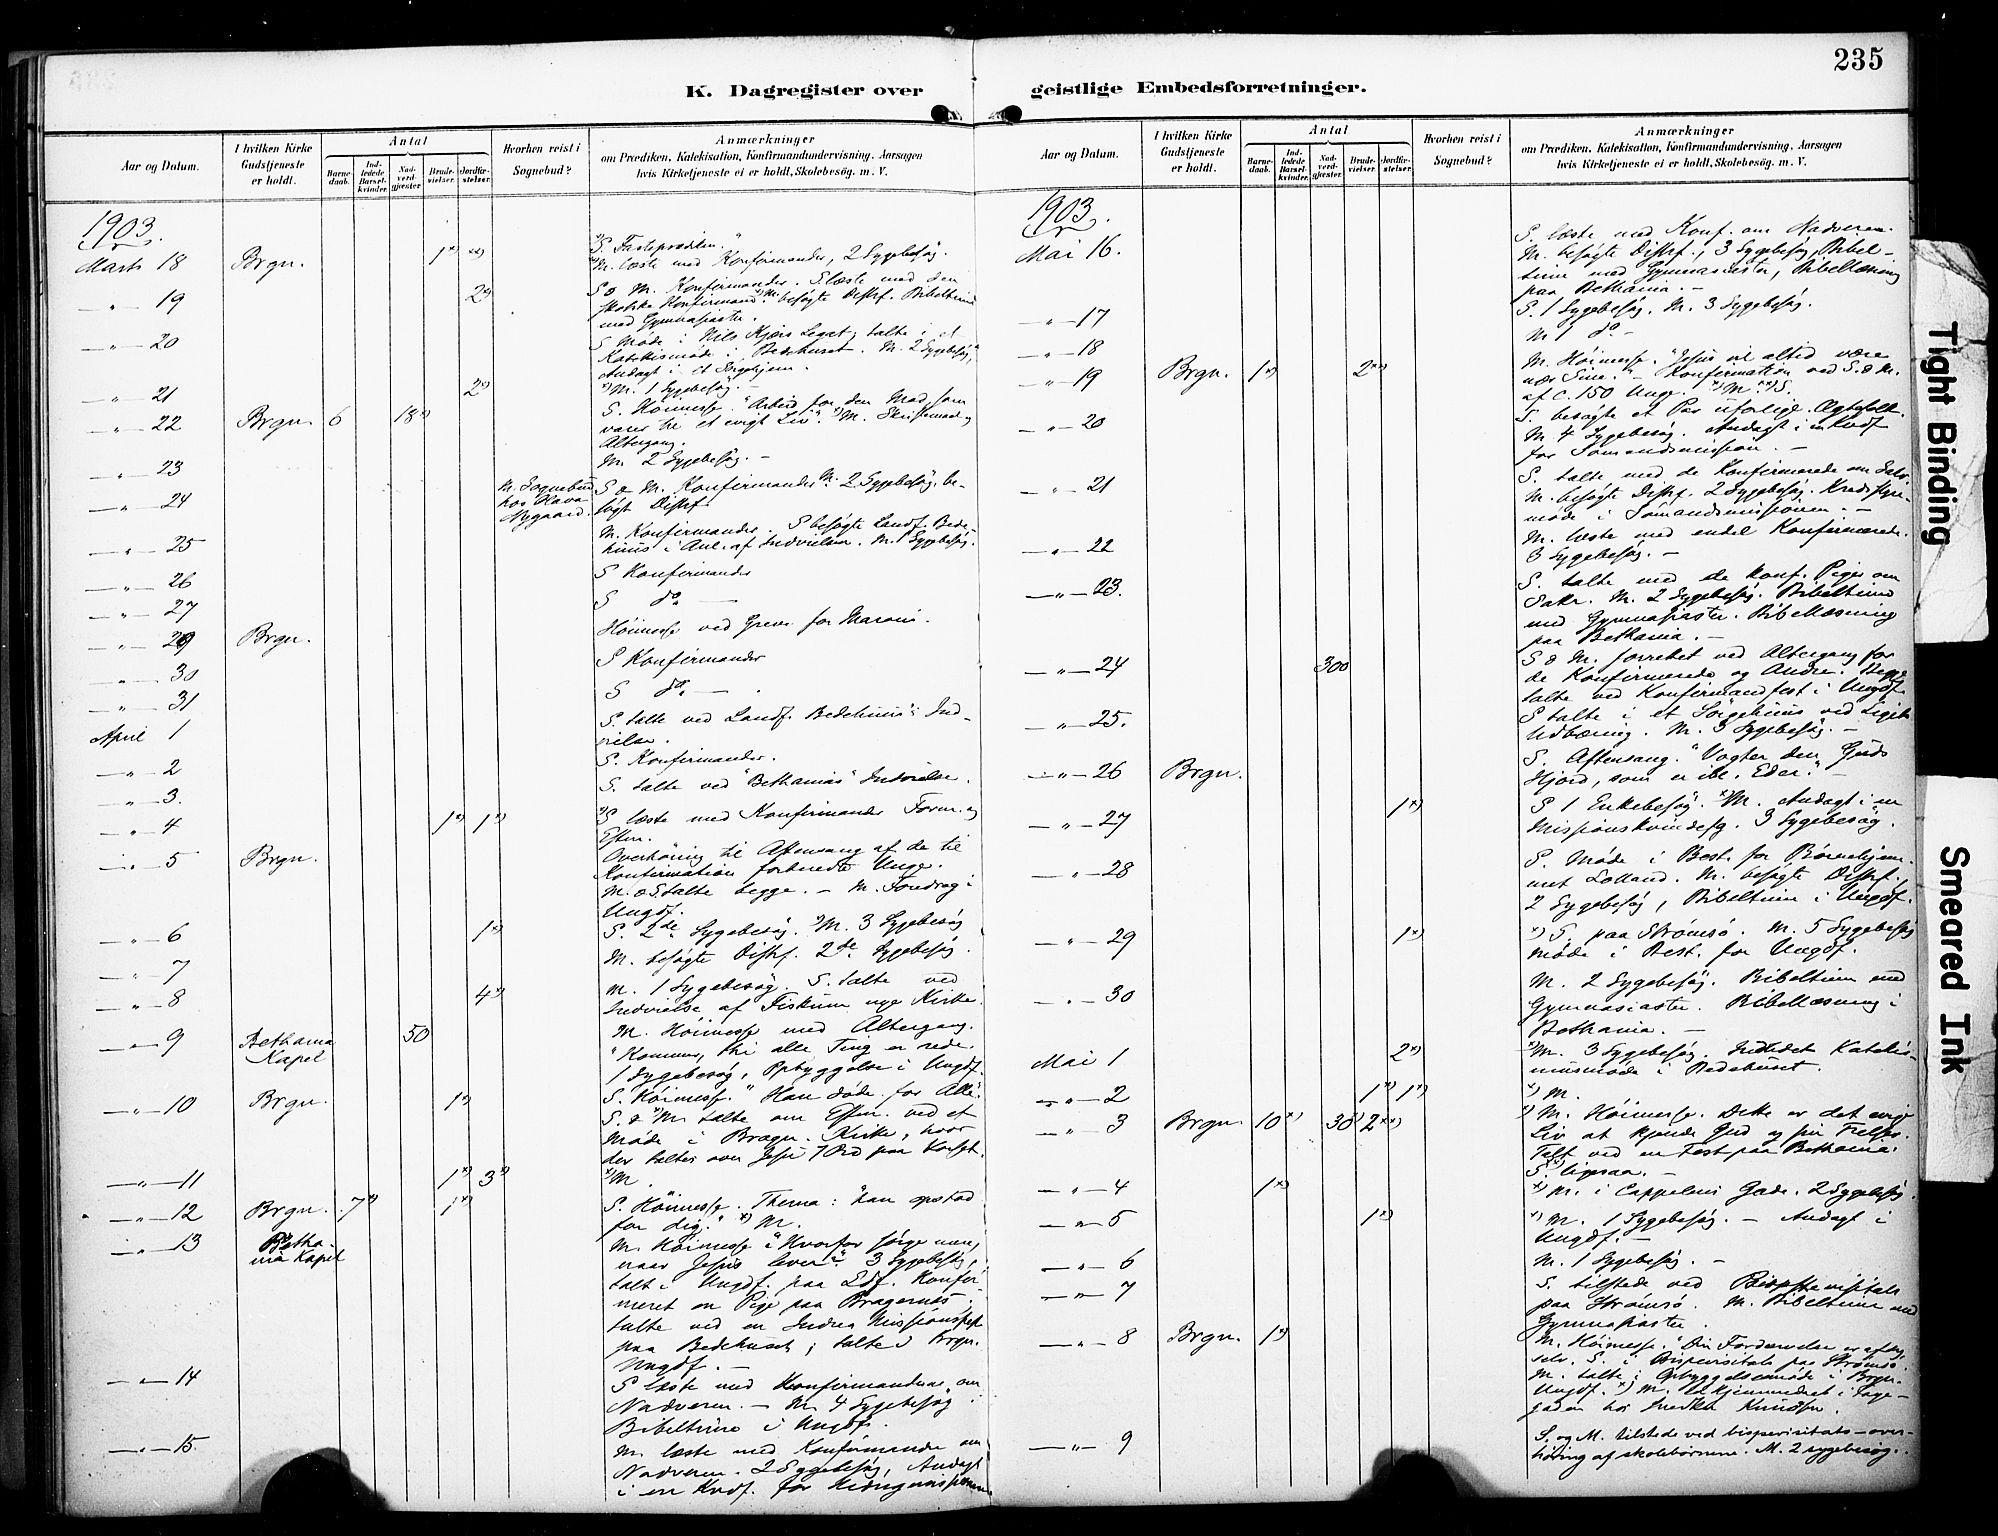 235
K. Dagregister over geistlige Embedsforretninger.
Aar og Datum.
I hvilken Kirke Gudstjeneste er holdt.
Antal
Barnedaab.
Indledede Barselkvinder.
Nadverdgjester.
Brudevielser.
Jordfæstelser.
Hvorhen reist i Sognebud?
Anmærkninger
om Prædiken, Katekisation, Konfirmandundervisning. Aarsagen
hvis Kirketjeneste ei er holdt, Skolebesøg. m. V.
1903.
Marts 18 Brgn. 1 x) xx)
S. Fasteprædiken.
M. læste med Konfirmander, 2 Sygebesøg.
" 19 2 x)
S & M. Konfirmander. S læste med den
Konfirmand. M. besøgte Distrf. Bibeltime
med Gymnasiaster.
" 20
S Møde i Nils Kjærs Legat, talte i et
Katekismøde i Bedehuset. M. 2 Sygebesøg,
Andagt i et Sørgehjem.
" 21 2 x)
x) M. 1 Sygebesøg. –
" 22 Brgn. 6 18 x)
S. Høimesse. "Arbeid for den Mad, som
varer til et evigt Liv". M. Skriftemaal og
Altergang.
" 23
M. 2 Sygebesøg. –
" 24 M. Sognebud hos Nygaard.
S & M. Konfirmander. M. 2 Sygebesøg, be-
søgt Distrf.
" 25
M. Konfirmander. S besøgte Landf. Bede-
huus i Anl. af Indvielsen. M. 1 Sygebesøg.
" 26
S Konfirmander
" 27
S do. —
" 29 Brgn.
Høimesse ved Greve for
" 30
S Konfirmander
" 31
S do. — .
April 1
S. talte ved Landf. Bedehuus's Ind-
vielse.
" 2
S. Konfirmander.
" 3.
S. talte ved "Bethanias" Indvielse.
" 4 1 x) 1 x)
x) S læste med Konfirmander Form. og
Efterm.
" 5 Brgn.
Overhøring til Aftensang af de til
Konfirmation forberedte Unge.
M. & S talte begge. – M. Foredrag i
Ungdf.
" 6 1 x)
S. 2de Sygebesøg. x) M. 3 Sygebesøg
" 7
M. besøgte Distrf. 2de Sygebesøg.
" 8 4 x)
M. 1 Sygebesøg. S. talte ved
Indvielse af Fiskum nye Kirke.
" 9 Bethania Kapel 50
M. Høimesse med Altergang.
"Kommer, thi alle Ting er rede.
1 Sygebesøg, Opbyggelse i Ungdf.
" 10 Brgn. 1 x)
S. Høimesse. "Han døde for Alle.
S. & x) M. talte om Eftm. ved et
Møde i Bragn. Kirke, hvor
der taltes over Jesu 7 Ord paa Korset.
" 11 1 x) 3 x)
x) M.
" 12 Brgn. 7 x) 1 x)
S. Høimesse. Thema: "han opstod
for dig." x) M.
" 13 Bethania Kapel
M. Høimesse "Hvorfor sørge nu,
naar Jesus lever". 3 Sygebesøg,
talt i Ungdf. paa Edf. Konfir-
meret en Pige paa Bragernes,
talte ved en Indre Missionsfest
paa Bedehuset; talte i Brgn.
Ungdf. –
" 14
S læste med Konfirmanderne om
Nadveren. – M 4 Sygebesøg.
Bibeltime i Ungdf.
" 15.
M. læste med Konfirmander om
Nadveren. 2 Sygebesøg, Andagt
i en Kvdf. for
1903.
Mai 16.
S. læste med Konf. om Nadveren.
M. besøgte Distrf., 3 Sygebesøg, Bibel-
time med Gymnasiaster, Bibellæsning
paa Bethania. –
" 17
S. 1 Sygebesøg. M. 3 Sygebesøg.
" 18
M 1 do –
" 19 Brgn. 1 x) 2 xx)
M. Høimesse. "Jesus vil altid være
nær Sine." – Konfirmation ved S. & M.
af c. 150 Unge. x) M. xx) S.
" 20
S. besøgte et Par uforlige Ægtefolk.
M. 4 Sygebesøg. Andagt i en Kvdf
for Sømandsmission. –
" 21
S. talte med de Konfirmerede om Sakr.
M. besøgte Distrf. 2 Sygebesøg. Kredsstyre-
møde i Sømandsmissionen. –
" 22
M. læste med endel Konfirmerede.
3 Sygebesøg. –
" 23.
S. talte med de konf. Piger om
Sakr. M. 2 Sygebesøg. Bibeltime
med Gymnasiaster. Bibellæsning
paa Bethania. –
" 24 300
S & M. forrettet ved Altergang for
de Konfirmerede og Andre. Begge
talte ved Konfirmandfest i Ungdf.
" 25.
S talte i et Sørgehuus ved Ligets
Udbæring. M. 3 Sygebesøg. –
" 26 Brgn.
S. Aftensang. "Vogter den Guds
Hjord, som er ibl. Eder." –
" 27 1 x)
S 1 Enkebesøg. x) M. Andagt i en
Missionskvindefg. 3 Sygebesøg.
" 28
S. Møde i Best. for Børnehjem-
met Solland. M. besøgte Distrf.,
2 Sygebesøg, Bibeltime i Ungdf.
" 29 1 x)
x) S. paa Strømsø. M. 5 Sygebesøg
Møde i Best. for Ungdf.
" 30
M. 2 Sygebesøg. Bibeltime med
Gymnasiaster. Bibellæsning i
Bethania. –
Mai 1 2 x)
x) M. 3 Sygebesøg. Indledet Katekis-
musmøde i Bedehuset.
" 2 1 x) 1 x)
x) M.
" 3 Brgn. 10 x) 30 2 xx)
x) M. Høimesse. Dette er det evige
Liv at kjende Gud og sin Frelser.
Talt ved en Fest paa Bethania.
S. ligesaa. –
" 4 1 x)
x) M. i Cappelens Gade. 2 Sygebesøg.
" 5 1 x)
x) M. 1 Sygebesøg. – Andagt i
Ungdf. –
" 6
M. 1 Sygebesøg. –
" 7
S. tilstede ved Bispevisitats
paa Strømsø. M. Bibeltime med
Gymnasiaster.
" 8 Brgn. 1 x)
M. Høimesse. "Din Fordærvelse er af dig
selv. S. i Bispevisitats paa Strømsø.
M. talte i Opbyggelsesmøde i Brgn.
Ungdf. x) M. hjemmedøbt i Tage-
gaden hos Knudsen.
" 9
S. og M. tilstede ved bispevisitats-over-
høring af skolebørnene. M. 2 sygebesøg.
Tight Binding
Smeared Ink